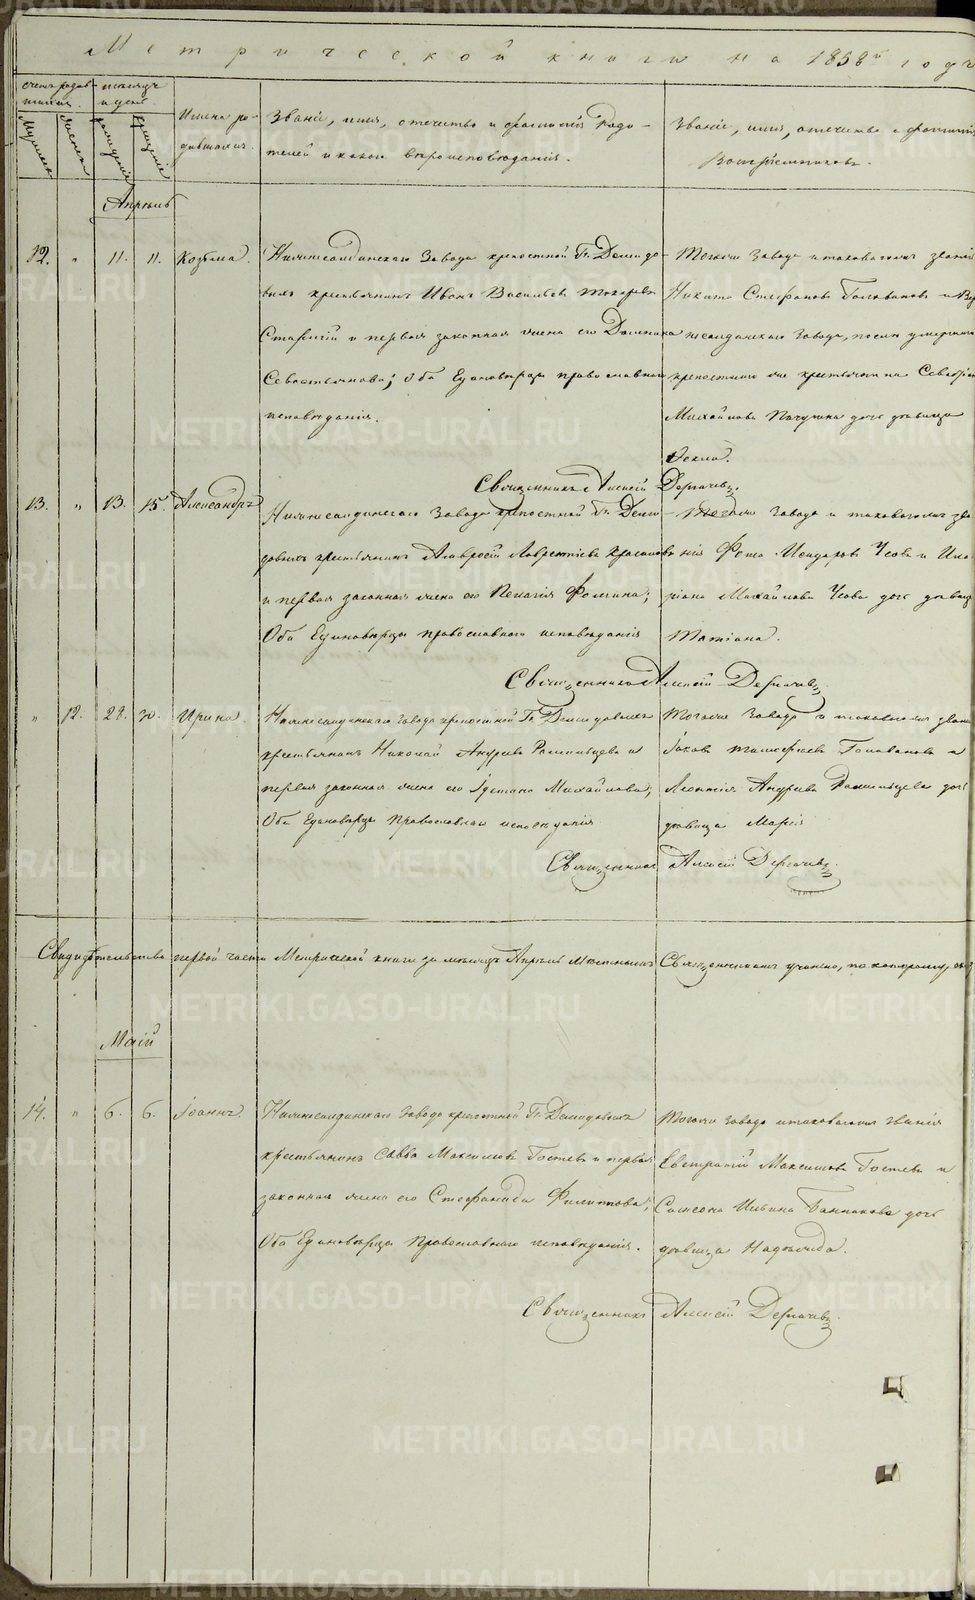 Метрической книги на 1858й годъ
счетъ родившихся
мѣсяцъ и день
Имена родившихся.
Званіе, имя, отечество и фамилія Роди-
телей и какого вѣроисповѣданія.
Званіе, имя, отчество и фамилія
Воспріемниковъ.
Мужеска
Женска
рожденія
крещенія
Апрѣль
12. " 11. 11. Козьма.
Нижнесалдинскаго Завода крепостной Гг. Демидо-
выхъ крестьянинъ Иванъ Васильевъ Токаревъ
Старшій и первая законная жена его Домника
Севостьянова; Оба Единовѣрцы православнаго
исповѣданія.
Тогоже Завода и таковагожъ званія
Никита Стефановъ Головановъ и
жнесалдинскаго Завода, послѣ умершаго
крепостнаго же крестьянина
Михайлова Пичугина дочь дѣвица
Фекла.
Священникъ Алексій Дерягинъ.
13. " 13. 15. Александръ
Нижнесалдинскаго Завода крепостной Гг. Деми-
довыхъ крестьянинъ Амвросій Лаврентіевъ
и первая законная жена его Пелагія Фомина;
Оба Единовѣрцы православнаго исповѣданія
Тогоже Завода и таковагожъ зва-
нія Фота Исидоровъ Усовъ и Ила-
ріона Михайлова Усова дочь дѣвица
Татіана.
Священникъ Алексій
" 12. 29. 30. Ирина.
Нижнесалдинскаго Завода крепостной Гг. Демидовыхъ
крестьянинъ Николай Андреевъ и
первая законная жена его Іустина Михайлова;
Оба Единовѣрцы Православнаго исповѣданія
Тогоже Завода и таковагожъ званія
Іаковъ Тимофеевъ Головановъ и
Леонтія Андреева дочь
дѣвица Марія
Священникъ Алексій
Свидѣтельство первой части Метрической книги за мѣсяцъ Апрѣль Мѣстнымъ Священникомъ учинено, по которому
Маій
14. " 6. 6. Іоаннъ.
Нижнесалдинскаго Завода крепостной Гг. Демидовыхъ
крестьянинъ Савва Максимовъ Гостевъ и первая
законная жена его Стефанида Филиппова;
Оба Единовѣрцы Православнаго исповѣданія.
Тогоже Завода и таковагожъ званія
Евстратій Максимовъ Гостевъ и
Симеона Ильина дочь
дѣвица Надежда.
Священникъ Алексій
METRIKI.GASO-URAL.RU